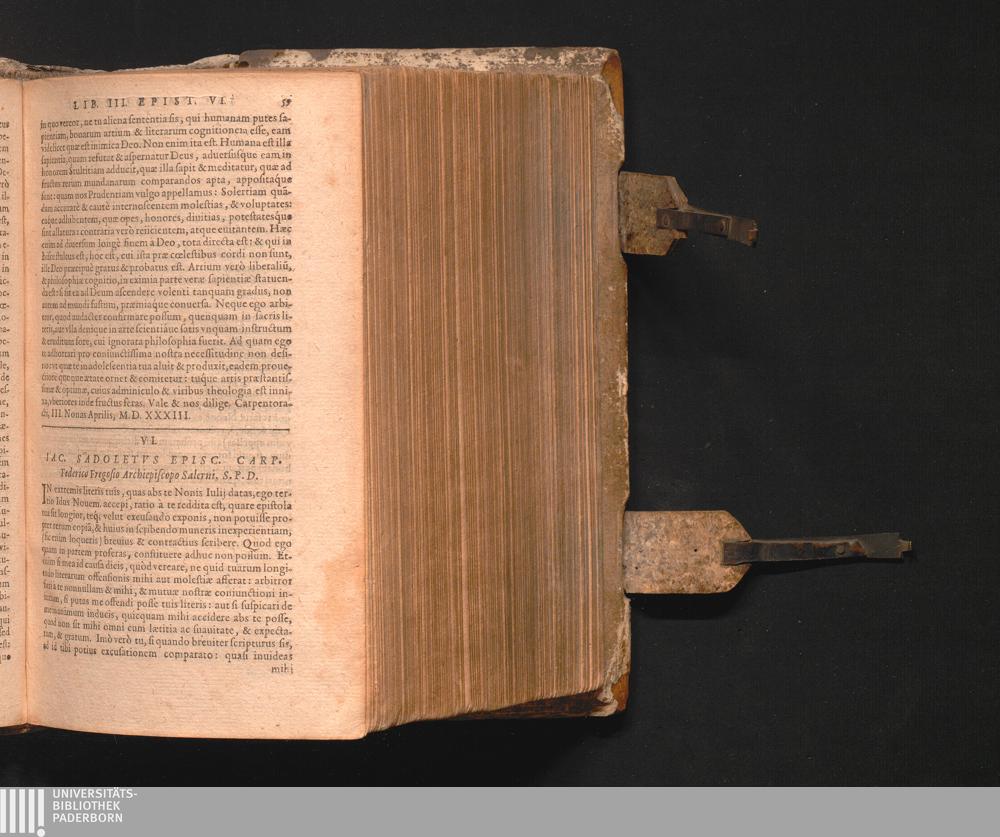 LIB. III. EPIST. VI. 59
in quo vereor, ne tu aliena sententia sis, qui humanam putes sa-
pientiam, bonarum artium & literarum cognitionem esse, eam
videlicet quæ est inimica Deo. Non enim ita est. Humana est illa
sapientia, quam refutat & aspernatur Deus, aduersusque eam in
honorem stultitiam adducit, quæ illa sapit & meditatur, quæ ad
fructus rerum mundanarum comparandos apta, appositaque
sunt: quam nos Prudentiam vulgo appellamus: Solertiam quã-
dam accuratè & cautè internoscentem molestias, & voluptates:
eaque adhibentem, quæ opes, honores, diuitias, potestatesque
sint allatura: contraria verò reiicientem, atque euitantem. Hæc
enim ad diuersum longè finem a Deo, tota directa est: & qui in
hisce stultus est, hoc est, cui ista præ cœlestibus cordi non sunt,
ille Deo præcipuè gratus & probatus est. Artium verò liberaliũ,
& philosophiæ cognitio, in eximia parte veræ sapientiæ statuen-
da est: si sit ea ad Deum ascendere volenti tanquam gradus, non
autem ad mundi fastum, præmiaque conuersa. Neque ego arbi-
tror, quod audacter confirmare possum, quenquam in sacris li-
teris, aut vlla denique in arte scientiáue satis vnquam instructum
& eruditum fore, cui ignorata philosophia fuerit. Ad quam ego
te adhortari pro coniunctissima nostra necessitudine non desi-
no: vt quæ te in adolescentia tua aluit & produxit, eadem proue-
ctiore quoque ætate ornet & comitetur: tuque artis præstantis-
simæ & optimæ, cuius adminiculo & viribus theologia est inni-
xa, vberiores inde fructus feras. Vale & nos dilige. Carpentora-
cti, III. Nonas Aprilis, M. D. XXXIII.
VI.
IAC. SADOLETVS EPISC. CARP.
Federico Fregosio Archiepiscopo Salerni, S. P. D.
IN extremis literis tuis, quas abs te Nonis Iulij datas, ego ter-
tio Idus Nouem. accepi, ratio à te reddita est, quare epistola
tua sit longior, teque velut excusando exponis, non potuisse pro-
pter rerum copiã, & huius in scribendo muneris inexperientiam,
(sic enim loqueris) breuius & contractius scribere. Quod ego
quam in partem proferas, constituere adhuc non possum. Et-
enim si mea id causa dicis, quòd vereare, ne quid tuarum longi-
tudo literarum offensionis mihi aut molestiæ afferat: arbitror
fieri a te nonnullam & mihi, & mutuæ nostræ coniunctioni in-
iuriam, si putas me offendi posse tuis literis: aut si suspicari de
me in animum inducis, quicquam mihi accidere abs te posse,
quod non sit mihi omni cum lætitia ac suauitate, & expecta-
tum, & gratum. Imò verò tu, si quando breuiter scripturus sis,
ad id tibi potius excusationem comparato: quasi inuideas
mihi
UNIVERSITÄTS-
BIBLIOTHEK
PADERBORN